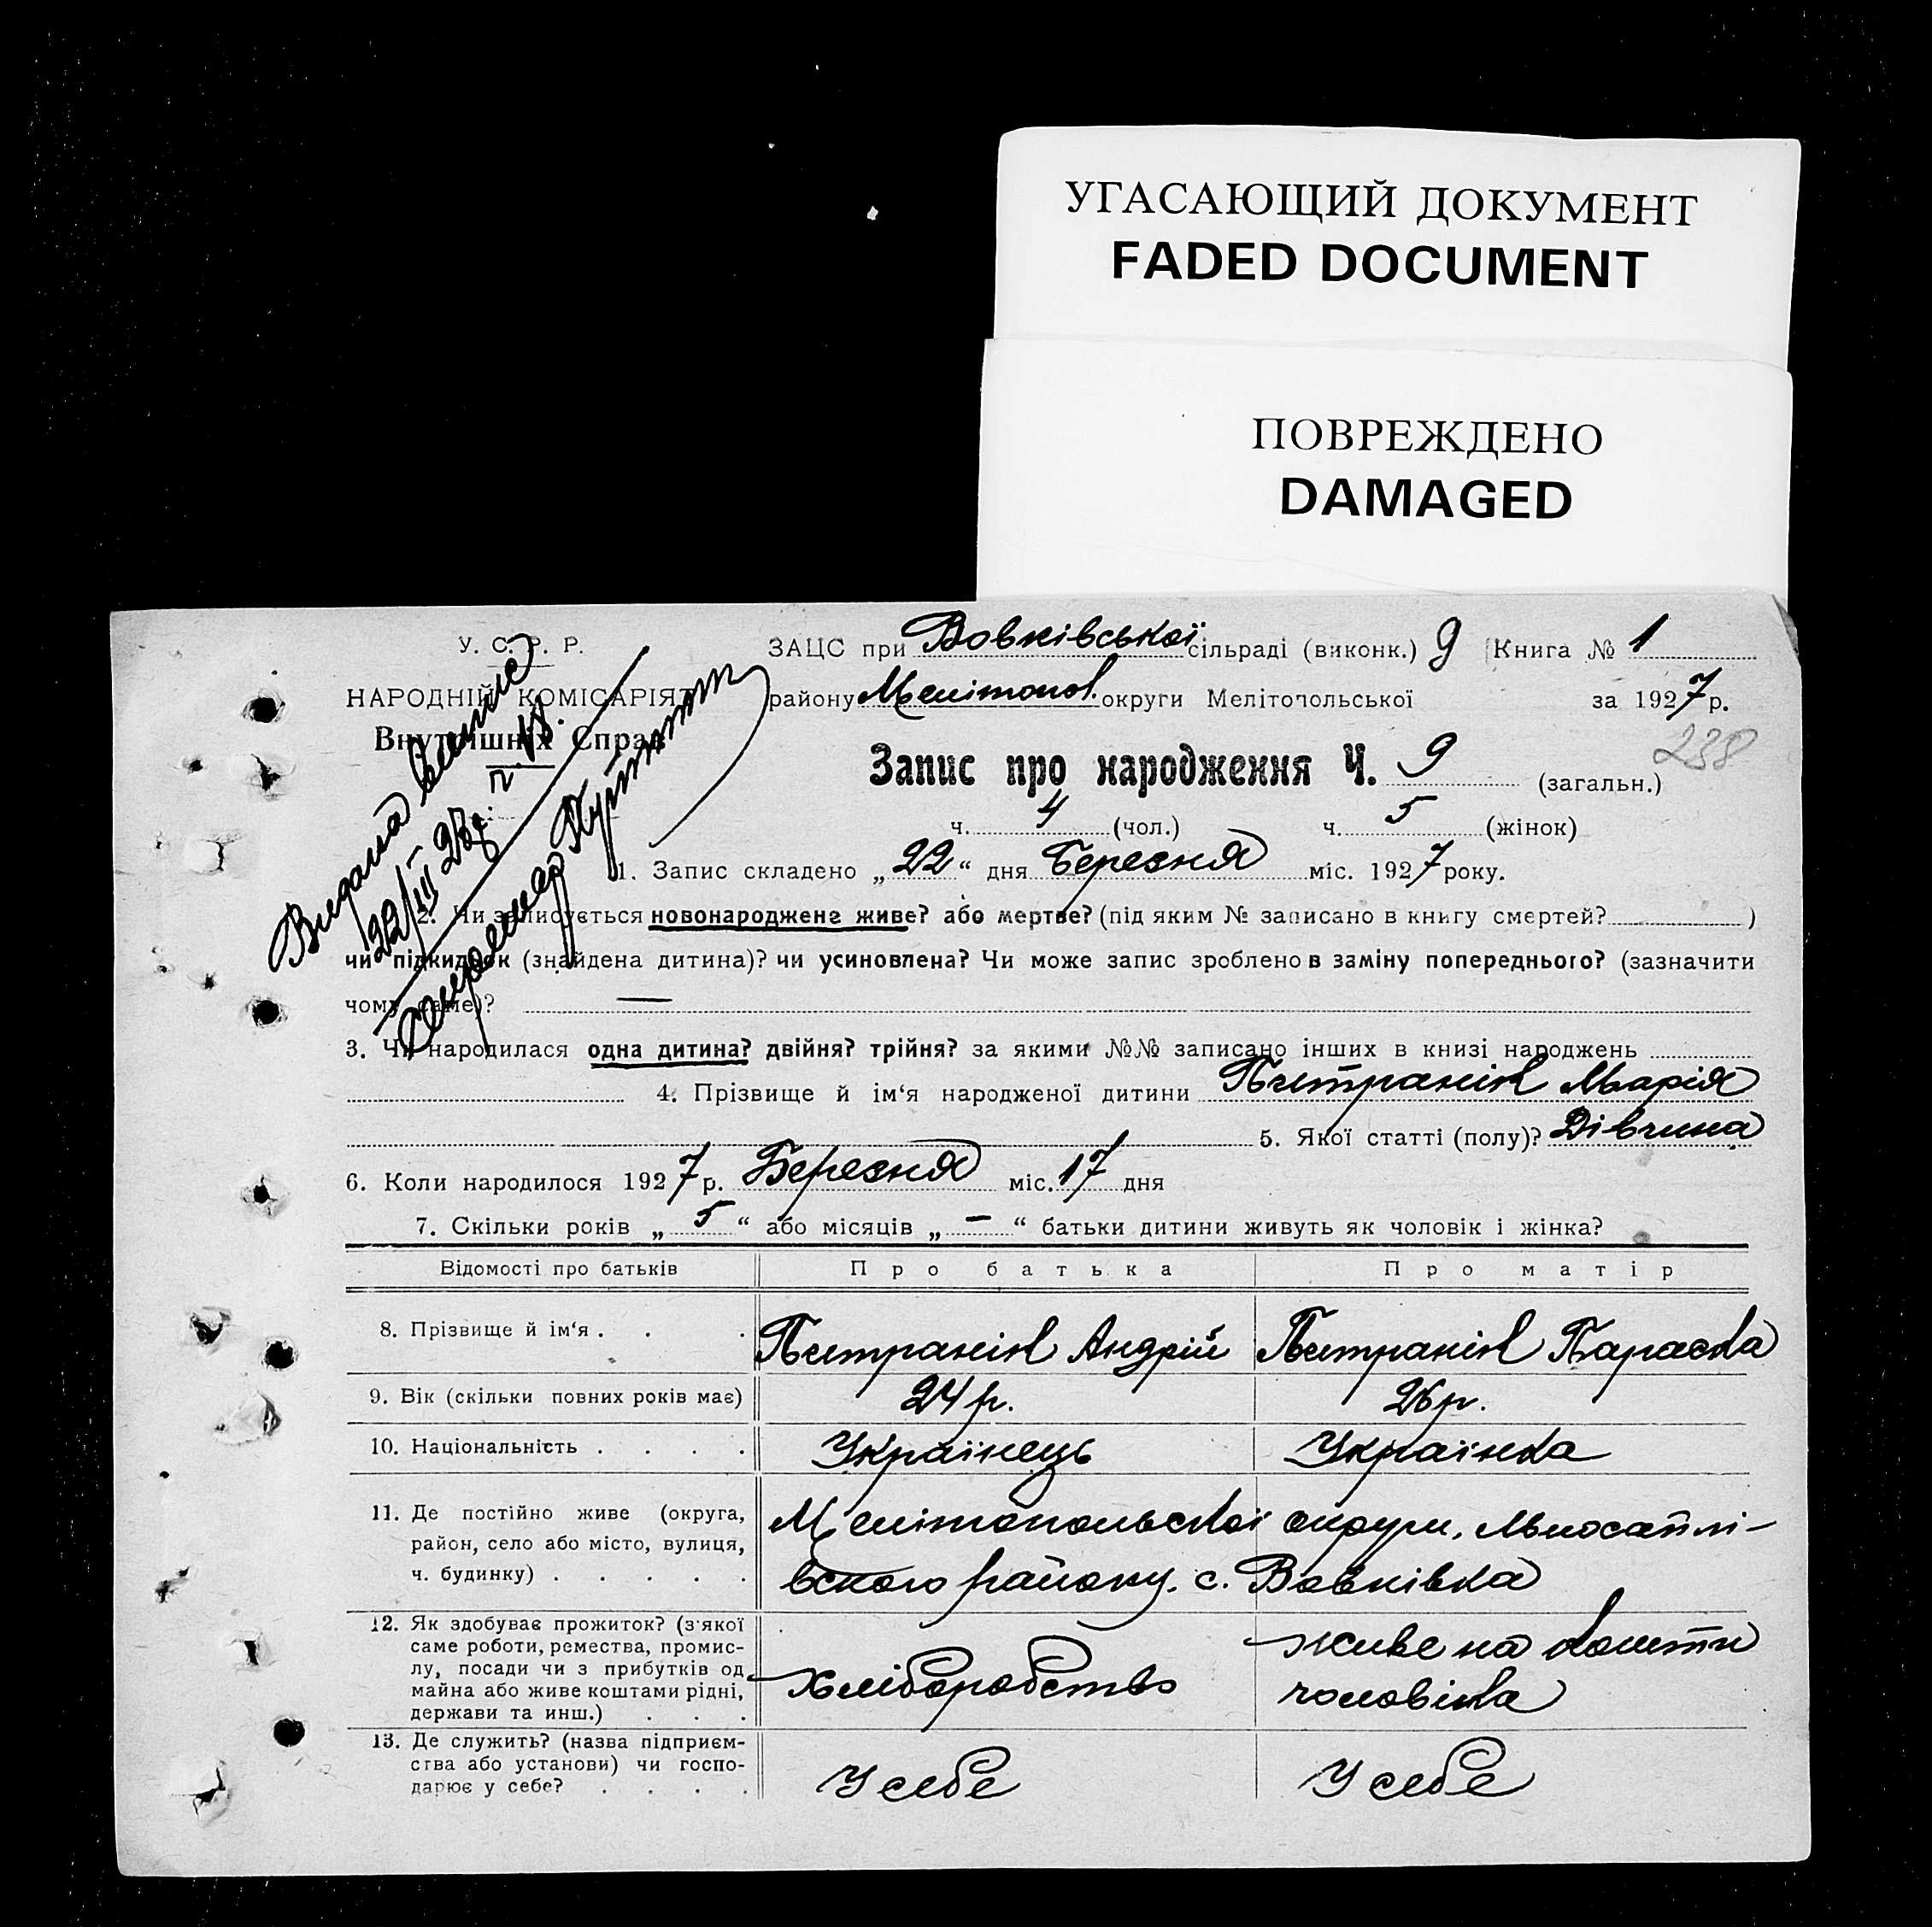 УГАСАЮЩИЙ ДОКУМЕНТ
FADED DOCUMENT
ПОВРЕЖДЕНО
DAMAGED
У. С. Р. Р.
НАРОДНІЙ КОМІСАРІЯТ
Внутрішніх Справ
ЗАЦС при Вовківської сільраді (виконк.) 9 Книга № 1
району Меліпопол. округи Мелітопольської за 1927 р.
238
Запис про народження Ч. 9 (загальн.)
ч. 4 (чол.) ч. 5 (жінок)
Видана
22/III 27р.
1. Запис складено „22“ дня Березня міс. 1927 року.
2. Чи записується новонароджене живе? або мертве? (під яким № записано в книгу смертей? )
чи підкидьок (знайдена дитина)? чи усиновлена? Чи може запис зроблено в заміну попереднього? (зазначити
чому саме)? —
3. Чи народилася одна дитина? двійня? трійня? за якими №№ записано інших в книзі народжень
4. Прізвище й ім‘я народженої дитини Питранін Марія
5. Якої статті (полу)? Дівчина
6. Коли народилося 1927 р. Березня міс. 17 дня
7. Скільки років „ 5 “ або місяців „ — “ батьки дитини живуть як чоловік і жінка?
Відомості про батьків Про батька Про матір
8. Прізвище й ім‘я . . . Питранін Андрій Питранін Параска
9. Вік (скільки повних років має) 24 р. 26 р.
10. Національність . . . . Українець Українка
11. Де постійно живе (округа,
район, село або місто, вулиця,
ч. будинку) . . . . .
Мелітопольської округи,
вського району. с. Вовківка
12. Як здобуває прожиток? (з якої
саме роботи, ремества, промис-
лу, посади чи з прибутків од
майна або живе коштами рідні,
держави та инш.) . . .
Хліборобство
живе на кошти
чоловіка
13. Де служить? (назва підприєм-
ства або установи) чи госпо-
дарює у себе? . . . .
У себе У себе